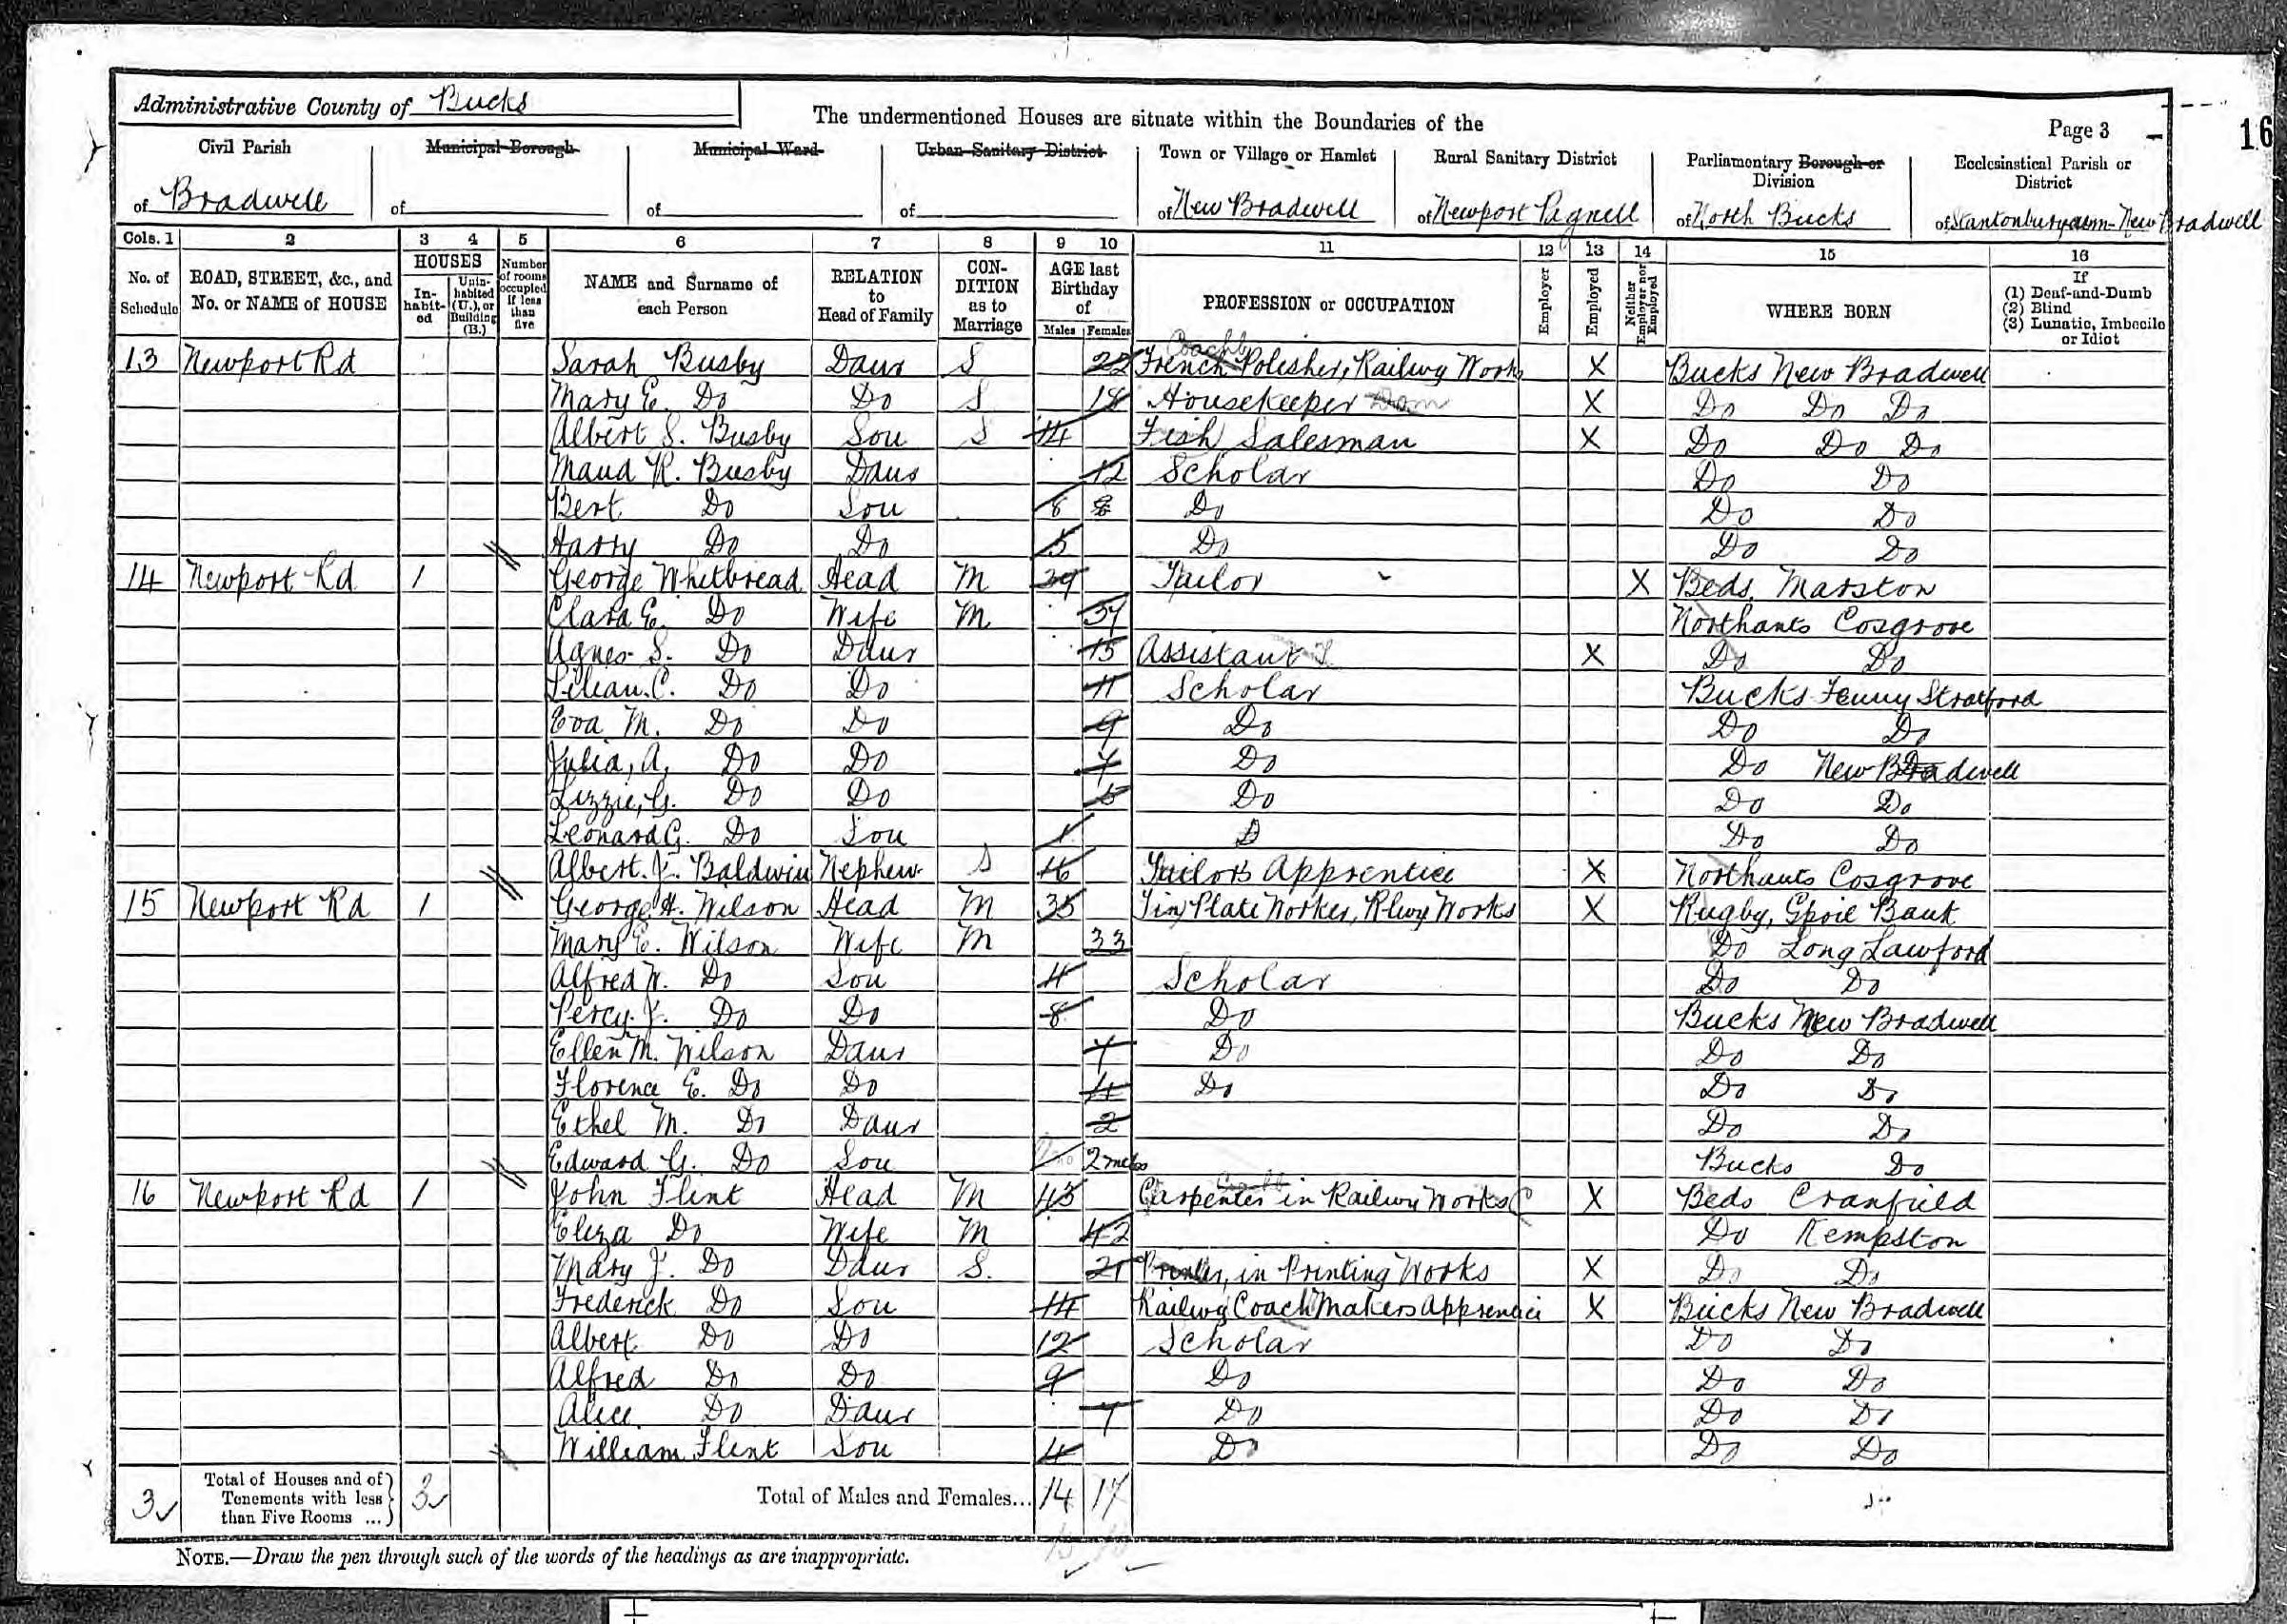 Administrative County of Bucks
The undermentioned Houses are situate within the Boundaries of the
Page 3
16
Civil Parish Municipal Borough Municipal Ward Urban Sanitary District Town or Village or Hamlet Rural Sanitary District Parliamentary Borough or Division Ecclesiastical Parish or District
of Bradwell of of of of New Bradwell of Newport Pagnell of North Bucks of Stantonbury New Bradwell
Cols. 1 2 3 4 5 6 7 8 9 10 11 12 13 14 15 16
No. of Schedule ROAD, STREET, &c., and No. or NAME of HOUSE HOUSES In-habit-ed Unin-habited (U.), or Building (B.) Number of rooms occupied if less than five NAME and Surname of each Person RELATION to Head of Family CON-DITION as to Marriage AGE last Birthday of Males Females PROFESSION or OCCUPATION Employer Employed Neither Employer nor Employed WHERE BORN If (1) Deaf-and-Dumb (2) Blind (3) Lunatic, Imbecile or Idiot
13 Newport Rd Sarah Busby Daur S 22 French Polisher, Railwy Works X Bucks New Bradwell
Mary E. Do Do S 18 Housekeeper Dom X Do Do Do
Albert S. Busby Son S 14 Fish Salesman X Do Do Do
Maud R. Busby Daur 12 Scholar Do Do
Bert Do Son 8 8 Do Do Do
Harry Do Do 5 Do Do Do
14 Newport Rd 1 George Whitbread Head M 39 Tailor X Beds. Marston
Clara E. Do Wife M 37 Northants Cosgrove
Agnes S. Do Daur 15 Assistant X Do Do
Lilian C. Do Do 11 Scholar Bucks Fenny Stratford
Eva M. Do Do 9 Do Do Do
Julia, A. Do Do 7 Do Do New Bradwell
Lizzie, G. Do Do 5 Do Do Do
Leonard G. Do Son 1 D Do Do
Albert. J. Baldwin Nephew S 16 Tailors Apprentice X Northants Cosgrove
15 Newport Rd 1 George H. Wilson Head M 35 Tin Plate Worker, Rlwy Works X Rugby, Spoil Bank
Mary E. Wilson Wife M 33 Do Long Lawford
Alfred W. Do Son 11 Scholar Do Do
Percy. J. Do Do 8 Do Bucks New Bradwell
Ellen M. Wilson Daur 7 Do Do Do
Florence E. Do Do 4 Do Do Do
Ethel M. Do Daur 2 Do Do
Edward G. Do Son 2 mths Bucks Do
16 Newport Rd 1 John Flint Head M 43 Carpenter in Railwy Works X Beds Cranfield
Eliza Do Wife M 42 Do Kempston
Mary J. Do Daur S. 21 Printer, in Printing Works X Do Do
Frederick Do Son 14 Railwy Coach Makers Apprentice X Bucks New Bradwell
Albert Do Do 12 Scholar Do Do
Alfred Do Do 9 Do Do Do
Alice Do Daur 7 Do Do Do
William Flint Son 4 Do Do Do
3 Total of Houses and of Tenements with less than Five Rooms ... 3 Total of Males and Females... 14 17
NOTE.—Draw the pen through such of the words of the headings as are inappropriate.